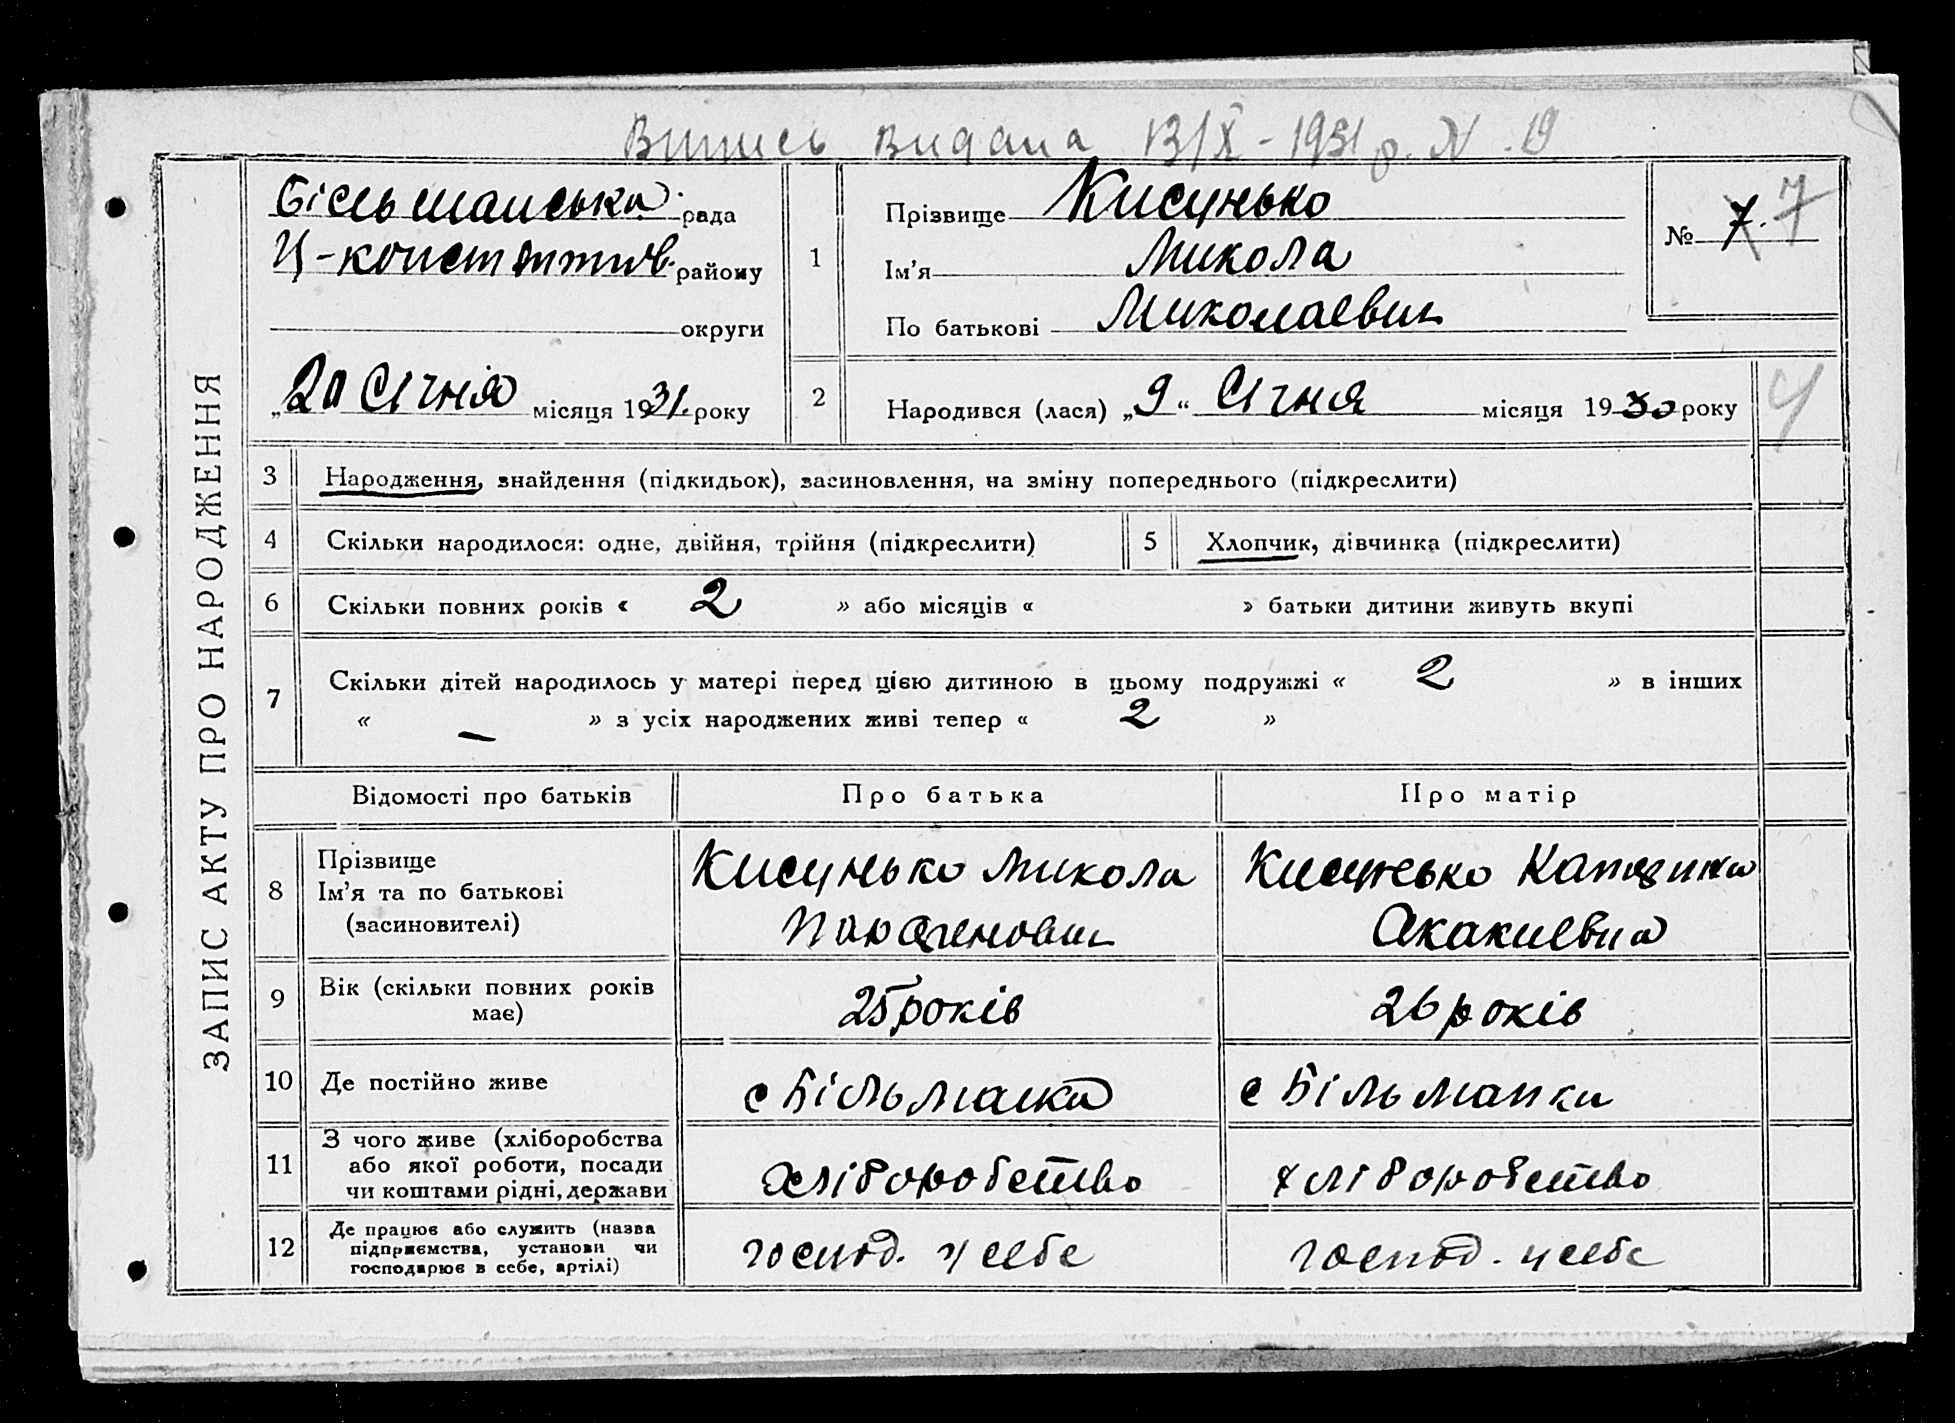 Випись видана 13/X-1931 р. N. 19
ЗАПИС АКТУ ПРО НАРОДЖЕННЯ
Більманська рада
району
округи
„20 Січня місяця 1931. року
1
Прізвище Кисунько
Ім’я Микола
По батькові Миколаевич
№ 7. 7
2
Народився (лася) „9“ Січня місяця 1930 року
4
3 Народження, знайдення (підкидьок), засиновлення, на зміну попереднього (підкреслити)
4 Скільки народилося: одне, двійня, трійня (підкреслити) 5 Хлопчик, дівчинка (підкреслити)
6 Скільки повних років « 2 » або місяців « » батьки дитини живуть вкупі
7 Скільки дітей народилось у матері перед цією дитиною в цьому подружжі « 2 » в інших
« — » з усіх народжених живі тепер « 2 »
Відомості про батьків Про батька Про матір
8 Прізвище
Ім’я та по батькові
(засиновителі)
Кисунько Микола
Кисунько
Акакиевна
9 Вік (скільки повних років
має)
25 років
26 років
10 Де постійно живе
с Більманка
с Більманки
11 З чого живе (хліборобства
або якої роботи, посади
чи коштами рідні, держави
хліборобство
хліборобство
12 Де працює або служить (назва
підприємства, установи чи
господарює в себе, артілі)
господ. у себе
господ. у себе